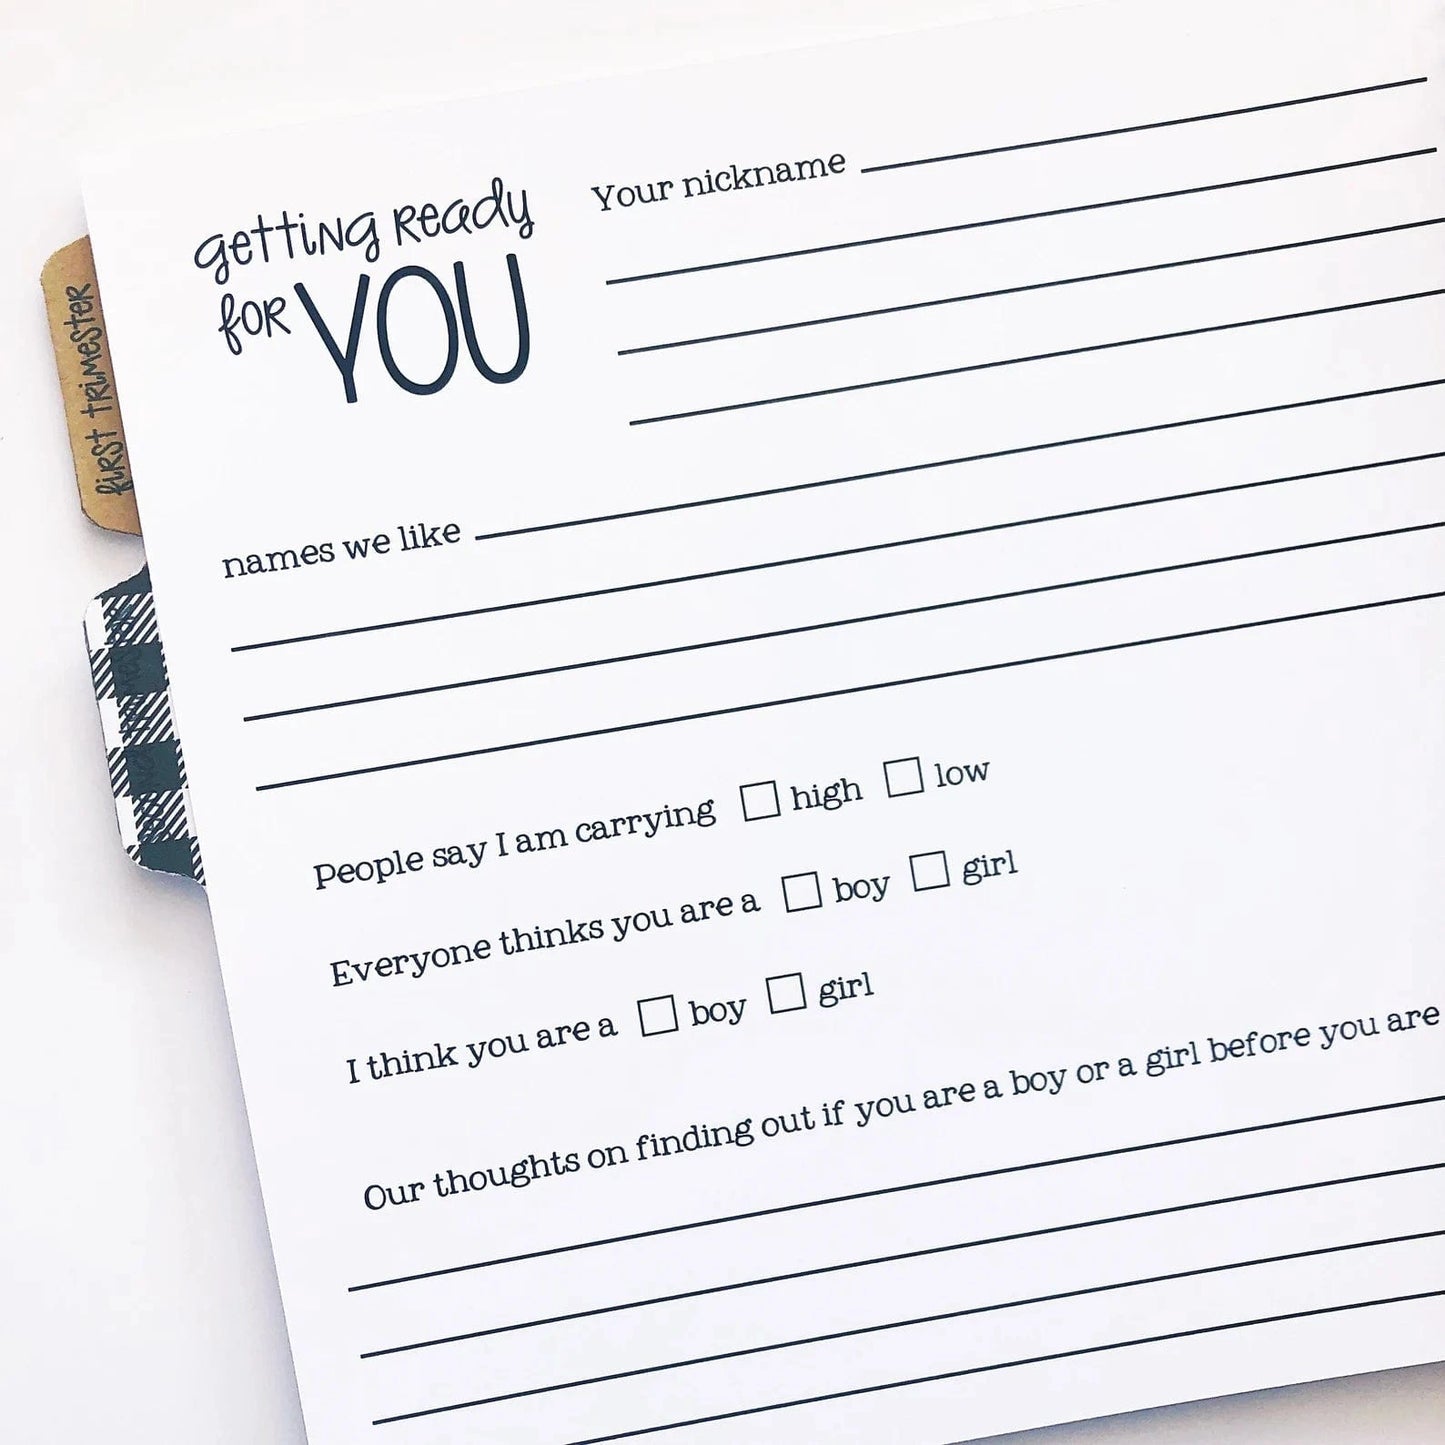 getting ready
for YOU
Your nickname
first trimester
names we like
People say I am carrying high low
Everyone thinks you are a boy girl
I think you are a boy girl
Our thoughts on finding out if you are a boy or a girl before you are